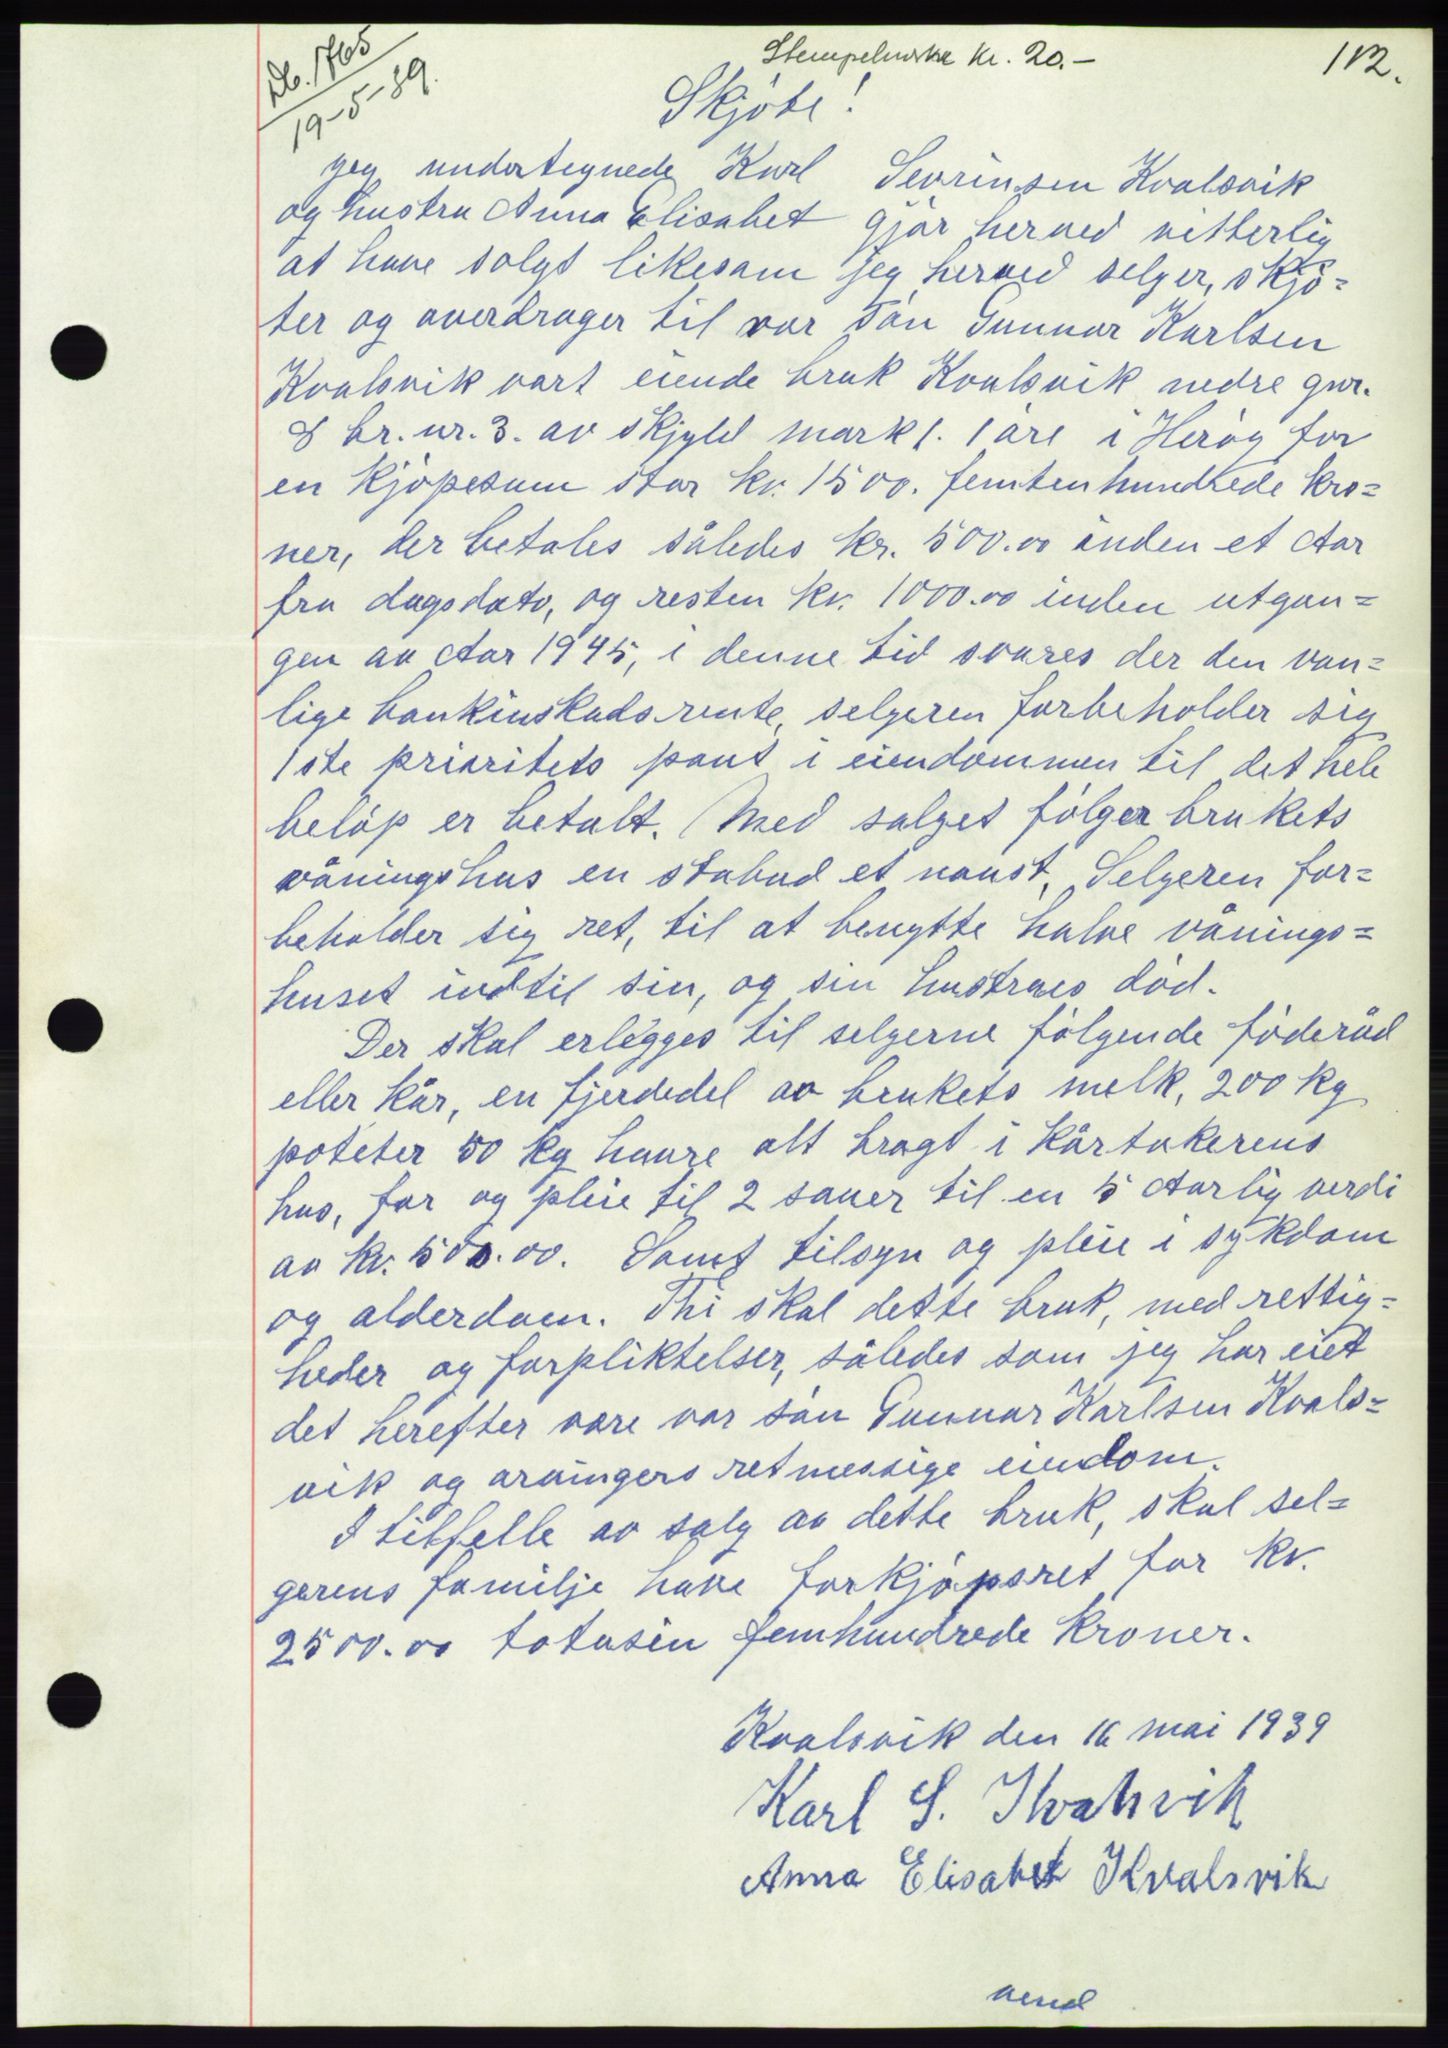 Db. 1765
19-5-39.
Stempelmerke kr. 20.-
112.
Skjøte!
Jeg undertegnede Karl Sevrinsen Kvalsvik
og hustru Anna Elisabet gjør herved vitterlig
at have solgt likesom jeg herved selger, skjø=
ter og overdrager til vor søn Gunnar Karlsen
Kvalsvik vort eiende bruk Kvalsvik nedre gnr.
8 br. nr. 3. av skjyld mark 1. 1 øre i Herøy for
en kjøpesum stor kr. 1500. femtenhundrede kro=
ner, der betales således kr. 500.00 inden et Aar
fra dagsdato, og resten kr. 1000.00 inden utgan=
gen av Aar 1945, i denne tid svares der den van=
lige bankinskudsrente, selgeren forbeholder sig
1ste prioritets pant i eiendommen til det hele
beløp er betalt. Med salget følger brukets
våningshus en stabud et naust, Selgeren for=
beholder sig ret, til at benytte halve vånings=
huset indtil sin, og sin hustrues død.
Der skal erlegges til selgerne følgende føderåd
eller kår, en fjerdedel av brukets melk, 200 kg
poteter 50 kg havre alt bragt i kårtakerens
hus, for og pleie til 2 sauer til en 5 Aarlig verdi
av kr. 500.00. Samt tilsyn og pleie i sykdom
og alderdom. Thi skal dette bruk, med rettig=
heder og forpliktelser, således som jeg har eiet
det herefter være vor søn Gunnar Karlsen Kvals=
vik og arvingers retmessige eiendom.
I tilfelle av salg av dette bruk, skal sel=
gerens familje have forkjøpsret for kr.
2500.00 totusen femhundrede kroner.
Kvalsvik den 16 mai 1939
Karl S. Kvalsvik
Anna Elisabet Kvalsvik
vend